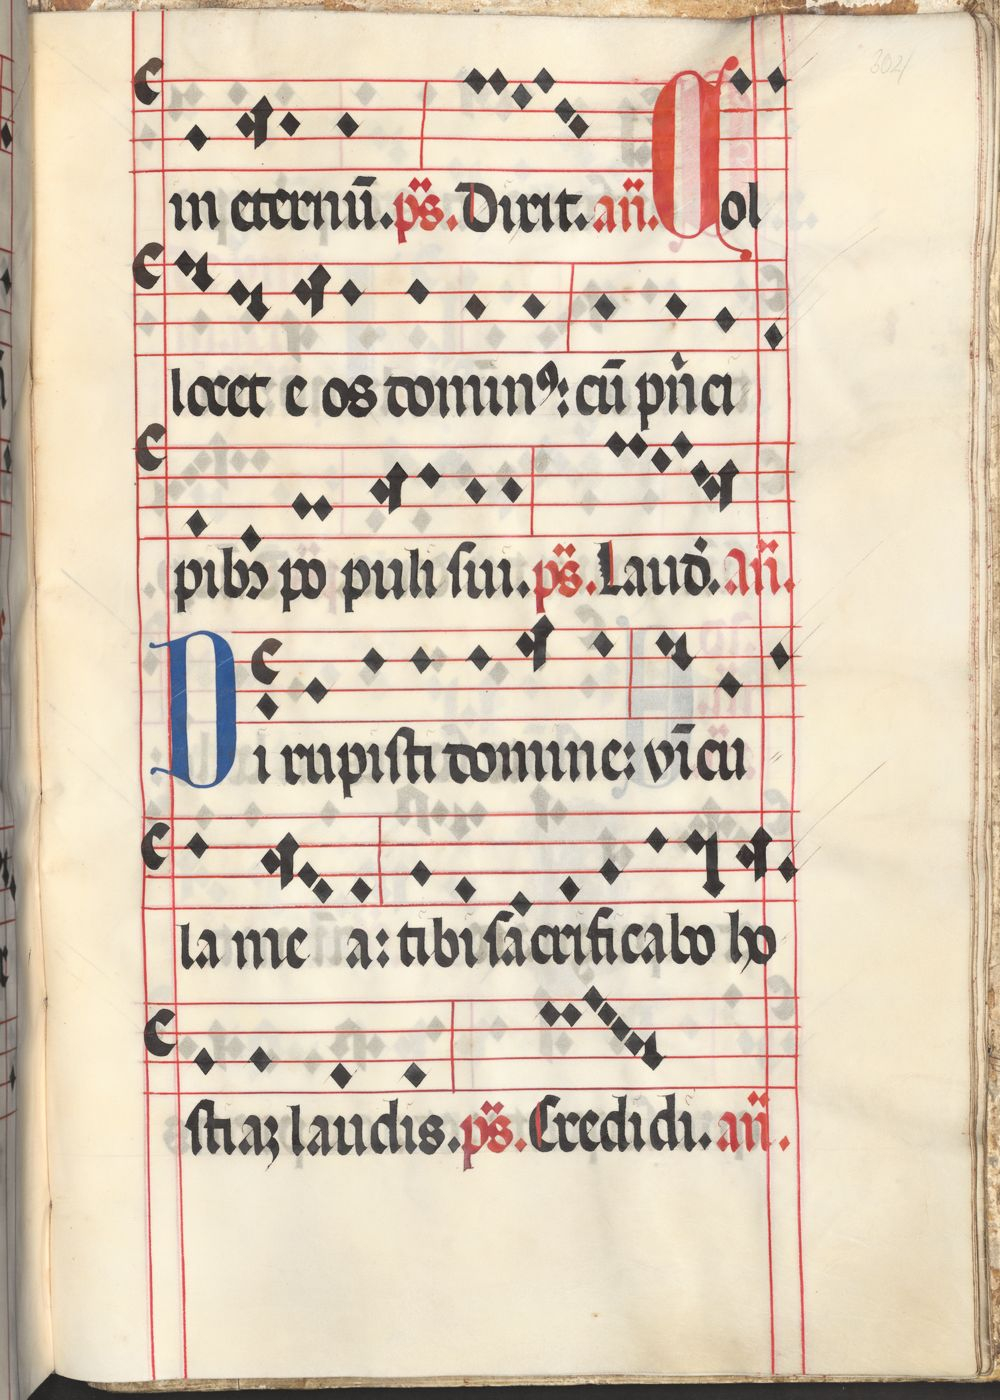 302
in eternū. ps̄. Dixit. an̄. Col
locet e os domin⁹: cū pn̄ci
pibꝫ po puli sui. ps̄. Laud. An̄.
Di rupisti domine: vīcu
la me a: tibi sācrificabo ho
stiaꝫ laudis. ps̄. Credidi. an̄.